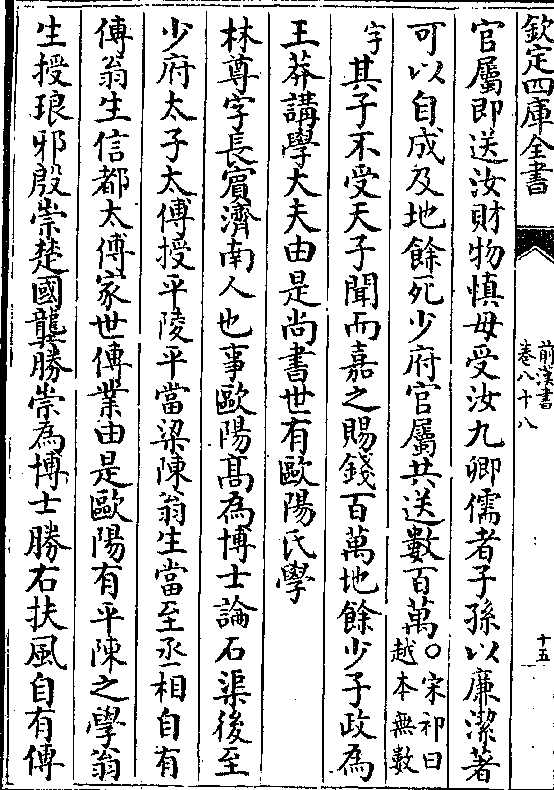 欽定四庫全書
前漢書
卷八十八
十五
官屬即送汝財物慎毋受汝九卿儒者子孫以廉潔著
可以自成及地餘死少府官屬共送數百萬○宋祁曰越本無數
字其子不受天子聞而嘉之賜錢百萬地餘少子政為
王莽講學大夫由是尚書世有歐陽氏學
林尊字長賓濟南人也事歐陽髙為博士論石渠後至
少府太子太傅授平陵平當梁陳翁生當至丞相自有
傳翁生信都太傅家世傳業由是歐陽有平陳之學翁
生授琅邪殷崇楚國龔勝崇為博士勝右扶風自有傳